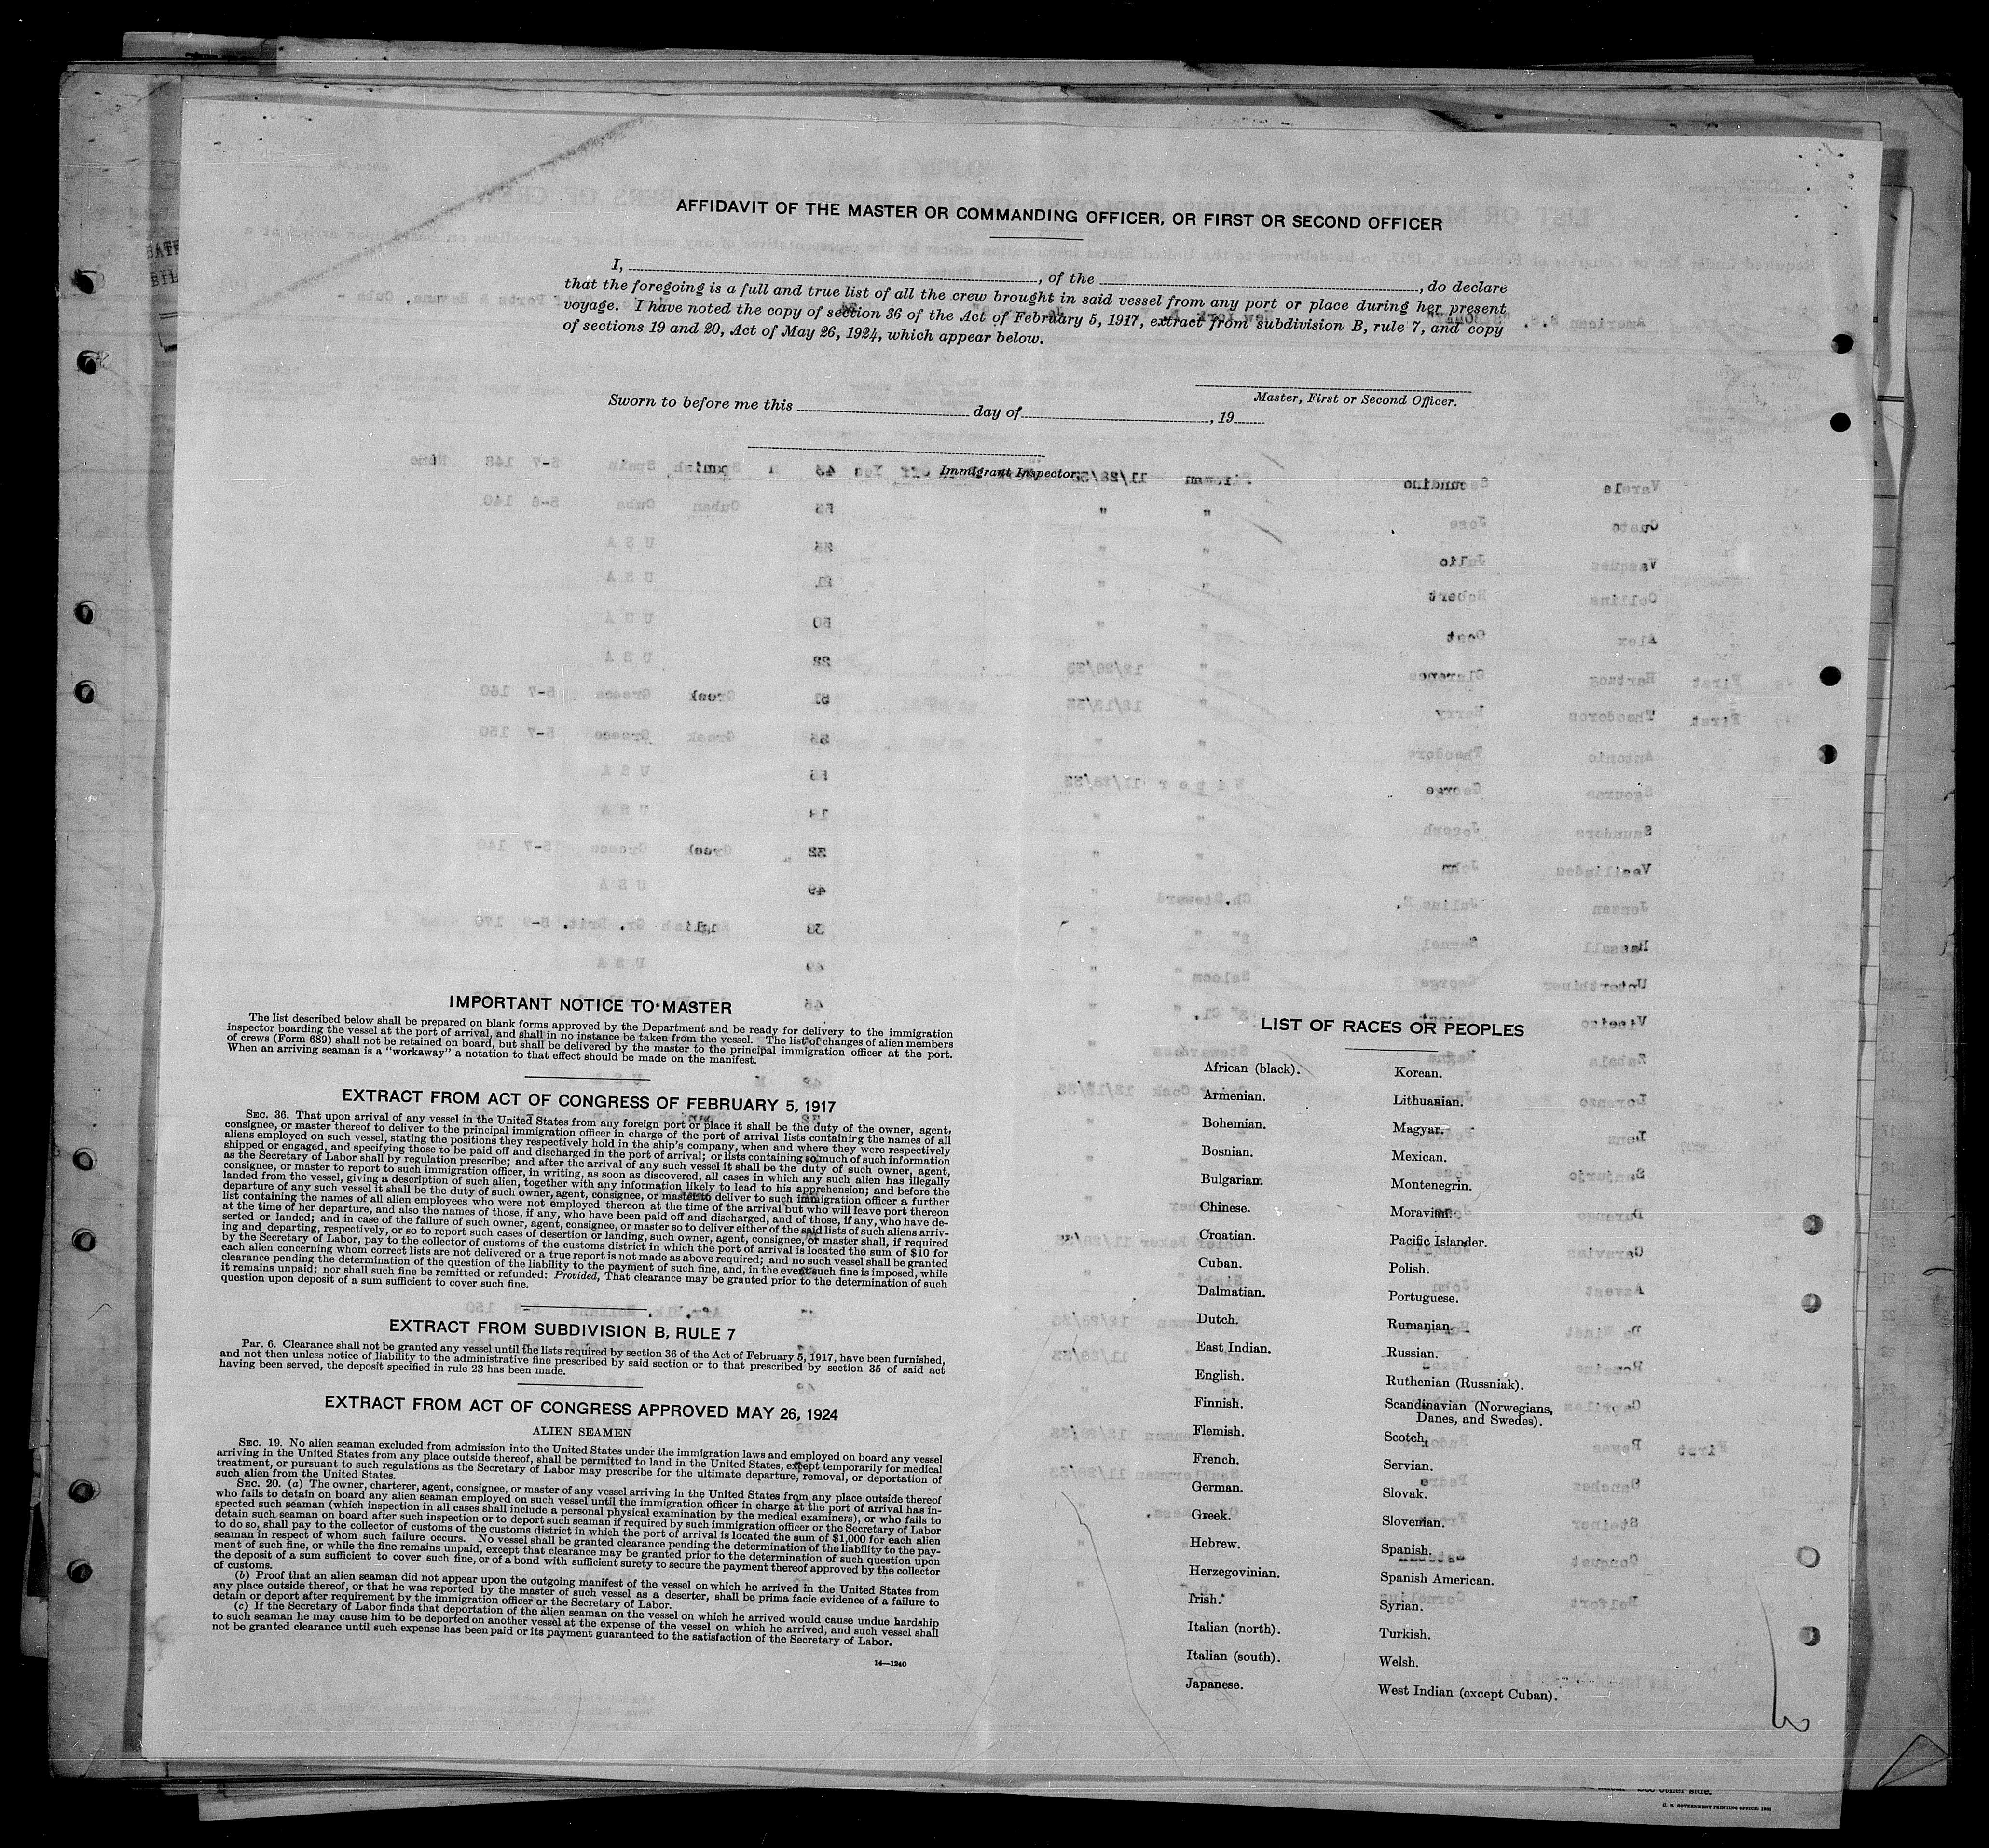 AFFIDAVIT OF THE MASTER OR COMMANDING OFFICER, OR FIRST OR SECOND OFFICER
I, , of the , do declare
that the foregoing is a full and true list of all the crew brought in said vessel from any port or place during her present
voyage. I have noted the copy of section 36 of the Act of February 5, 1917, extract from subdivision B, rule 7, and copy
of sections 19 and 20, Act of May 26, 1924, which appear below.
Master, First or Second Officer.
Sworn to before me this day of , 19
Immigrant Inspector.
IMPORTANT NOTICE TO MASTER
The list described below shall be prepared on blank forms approved by the Department and be ready for delivery to the immigration
inspector boarding the vessel at the port of arrival, and shall in no instance be taken from the vessel. The list of changes of alien members
of crews (Form 689) shall not be retained on board, but shall be delivered by the master to the principal immigration officer at the port.
When an arriving seaman is a "workaway" a notation to that effect should be made on the manifest.
EXTRACT FROM ACT OF CONGRESS OF FEBRUARY 5, 1917
SEC. 36. That upon arrival of any vessel in the United States from any foreign port or place it shall be the duty of the owner, agent,
consignee, or master thereof to deliver to the principal immigration officer in charge of the port of arrival lists containing the names of all
aliens employed on such vessel, stating the positions they respectively hold in the ship's company, when and where they were respectively
shipped or engaged, and specifying those to be paid off and discharged in the port of arrival; or lists containing so much of such information
as the Secretary of Labor shall by regulation prescribe; and after the arrival of any such vessel it shall be the duty of such owner, agent,
consignee, or master to report to such immigration officer, in writing, as soon as discovered, all cases in which any such alien has illegally
landed from the vessel, giving a description of such alien, together with any information likely to lead to his apprehension; and before the
departure of any such vessel it shall be the duty of such owner, agent, consignee, or master to deliver to such immigration officer a further
list containing the names of all alien employees who were not employed thereon at the time of the arrival but who will leave port thereon
at the time of her departure, and also the names of those, if any, who have been paid off and discharged, and of those, if any, who have de-
serted or landed; and in case of the failure of such owner, agent, consignee, or master so to deliver either of the said lists of such aliens arriv-
ing and departing, respectively, or so to report such cases of desertion or landing, such owner, agent, consignee, or master shall, if required
by the Secretary of Labor, pay to the collector of customs of the customs district in which the port of arrival is located the sum of $10 for
each alien concerning whom correct lists are not delivered or a true report is not made as above required; and no such vessel shall be granted
clearance pending the determination of the question of the liability to the payment of such fine, and, in the event such fine is imposed, while
it remains unpaid; nor shall such fine be remitted or refunded: Provided, That clearance may be granted prior to the determination of such
question upon deposit of a sum sufficient to cover such fine.
EXTRACT FROM SUBDIVISION B, RULE 7
Par. 6. Clearance shall not be granted any vessel until the lists required by section 36 of the Act of February 5, 1917, have been furnished,
and not then unless notice of liability to the administrative fine prescribed by said section or to that prescribed by section 35 of said act
having been served, the deposit specified in rule 23 has been made.
EXTRACT FROM ACT OF CONGRESS APPROVED MAY 26, 1924
ALIEN SEAMEN
SEC. 19. No alien seaman excluded from admission into the United States under the immigration laws and employed on board any vessel
arriving in the United States from any place outside thereof, shall be permitted to land in the United States, except temporarily for medical
treatment, or pursuant to such regulations as the Secretary of Labor may prescribe for the ultimate departure, removal, or deportation of
such alien from the United States.
SEC. 20. (a) The owner, charterer, agent, consignee, or master of any vessel arriving in the United States from any place outside thereof
who fails to detain on board any alien seaman employed on such vessel until the immigration officer in charge at the port of arrival has in-
spected such seaman (which inspection in all cases shall include a personal physical examination by the medical examiners), or who fails to
detain such seaman on board after such inspection or to deport such seaman if required by such immigration officer or the Secretary of Labor
to do so, shall pay to the collector of customs of the customs district in which the port of arrival is located the sum of $1,000 for each alien
seaman in respect of whom such failure occurs. No vessel shall be granted clearance pending the determination of the liability to the pay-
ment of such fine, or while the fine remains unpaid, except that clearance may be granted prior to the determination of such question upon
the deposit of a sum sufficient to cover such fine, or of a bond with sufficient surety to secure the payment thereof approved by the collector
of customs.
(b) Proof that an alien seaman did not appear upon the outgoing manifest of the vessel on which he arrived in the United States from
any place outside thereof, or that he was reported by the master of such vessel as a deserter, shall be prima facie evidence of a failure to
detain or deport after requirement by the immigration officer or the Secretary of Labor.
(c) If the Secretary of Labor finds that deportation of the alien seaman on the vessel on which he arrived would cause undue hardship
to such seaman he may cause him to be deported on another vessel at the expense of the vessel on which he arrived, and such vessel shall
not be granted clearance until such expense has been paid or its payment guaranteed to the satisfaction of the Secretary of Labor.
14—1240
LIST OF RACES OR PEOPLES
African (black).
Armenian.
Bohemian.
Bosnian.
Bulgarian.
Chinese.
Croatian.
Cuban.
Dalmatian.
Dutch.
East Indian.
English.
Finnish.
Flemish.
French.
German.
Greek.
Hebrew.
Herzegovinian.
Irish.
Italian (north).
Italian (south).
Japanese.
Korean.
Lithuanian.
Magyar.
Mexican.
Montenegrin.
Moravian.
Pacific Islander.
Polish.
Portuguese.
Rumanian.
Russian.
Ruthenian (Russniak).
Scandinavian (Norwegians,
Danes, and Swedes).
Scotch.
Servian.
Slovak.
Slovenian.
Spanish.
Spanish American.
Syrian.
Turkish.
Welsh.
West Indian (except Cuban).
other side.
U. S. GOVERNMENT PRINTING OFFICE: